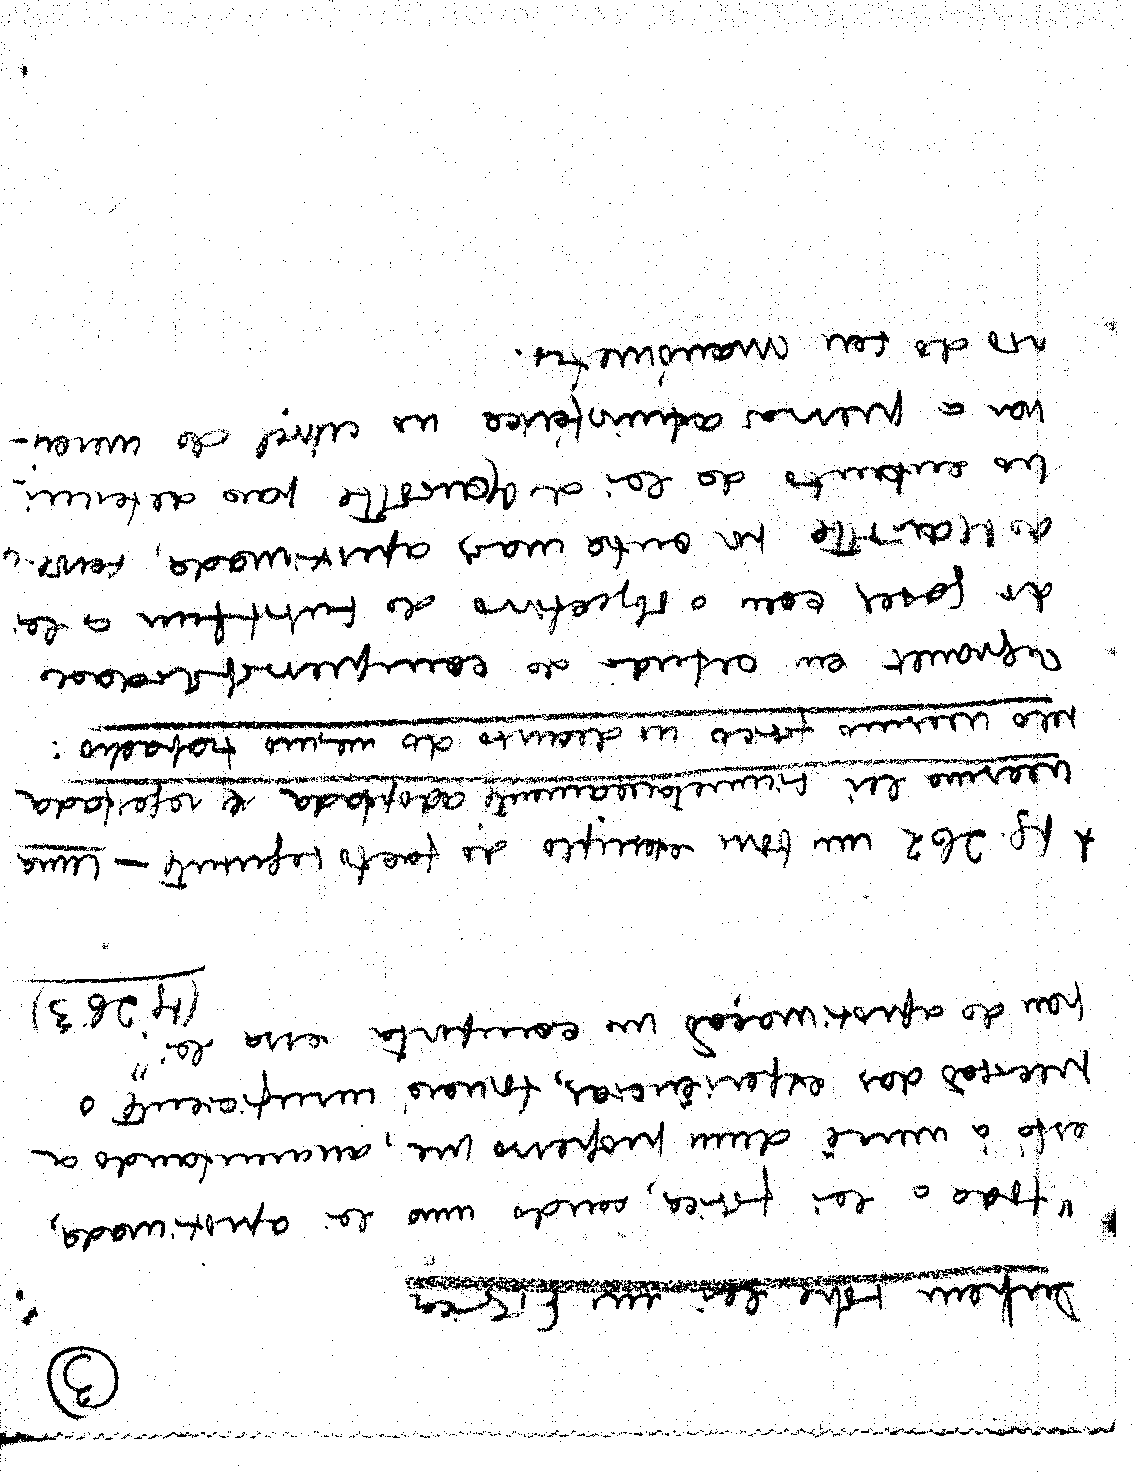 ③
Duhem sobre lei em Física
"Toda a lei física, sendo uma lei aproximada,
está à mercê dum progresso que, aumentando a
precisão das experiências, tornará insuficiente o
grau de aproximação que comporta essa lei."
(pg. 263)
A pg. 262 um bom exemplo do facto seguinte – uma
mesma lei simultaneamente adoptada e rejeitada
pelo mesmo físico no decurso do mesmo trabalho:
Regnault em estudo de compressibilidade
do gases com o objectivo de substituir a lei
de Mariotte por outra mais aproximada, serve-
no entanto da lei de Mariotte para determi-
nar a pressão atmosférica ao nível do mercú-
rio do seu manómetro.